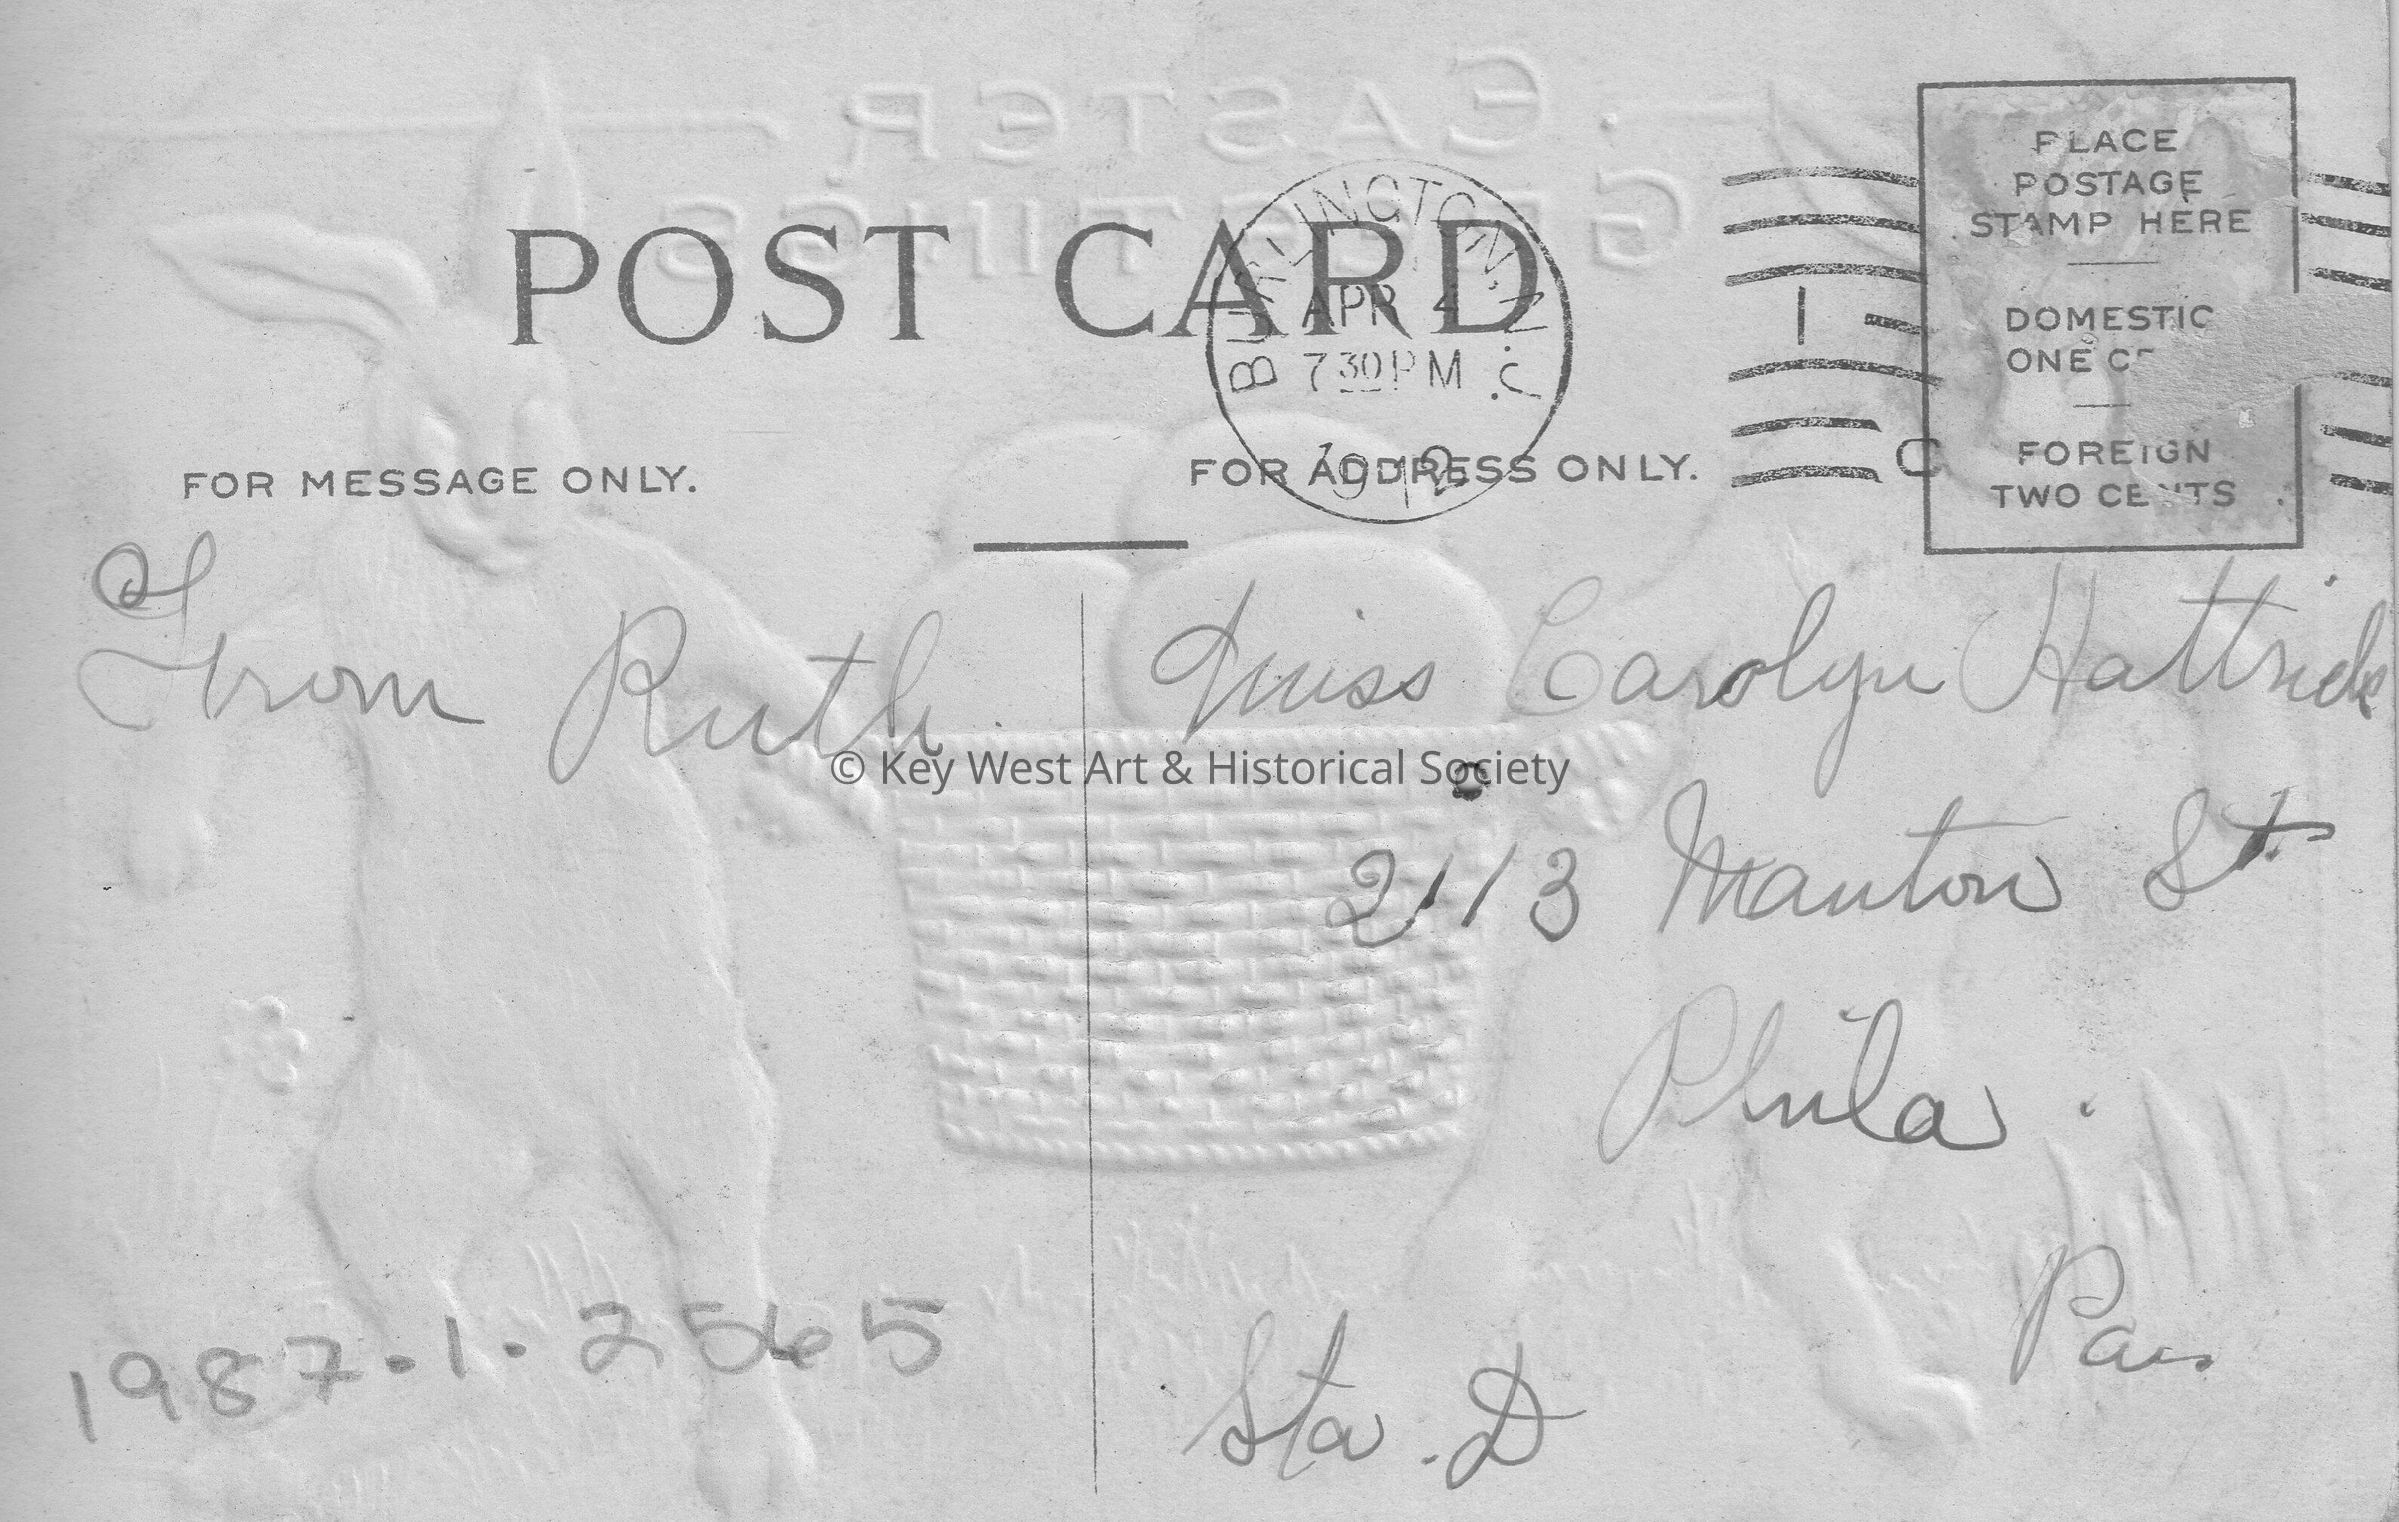 EASTER
GREETINGS
POST CARD
BURLINGTON, N.J.
APR 4
7 30 PM
1912
1
C
PLACE
POSTAGE
STAMP HERE
DOMESTIC
ONE CE
FOREIGN
TWO CENTS
FOR MESSAGE ONLY.
FOR ADDRESS ONLY.
From Ruth.
Miss Carolyn Hattrick
© Key West Art & Historical Society
2113 Manton St.
Phila.
Pa
Sta. D
1987.1.2565